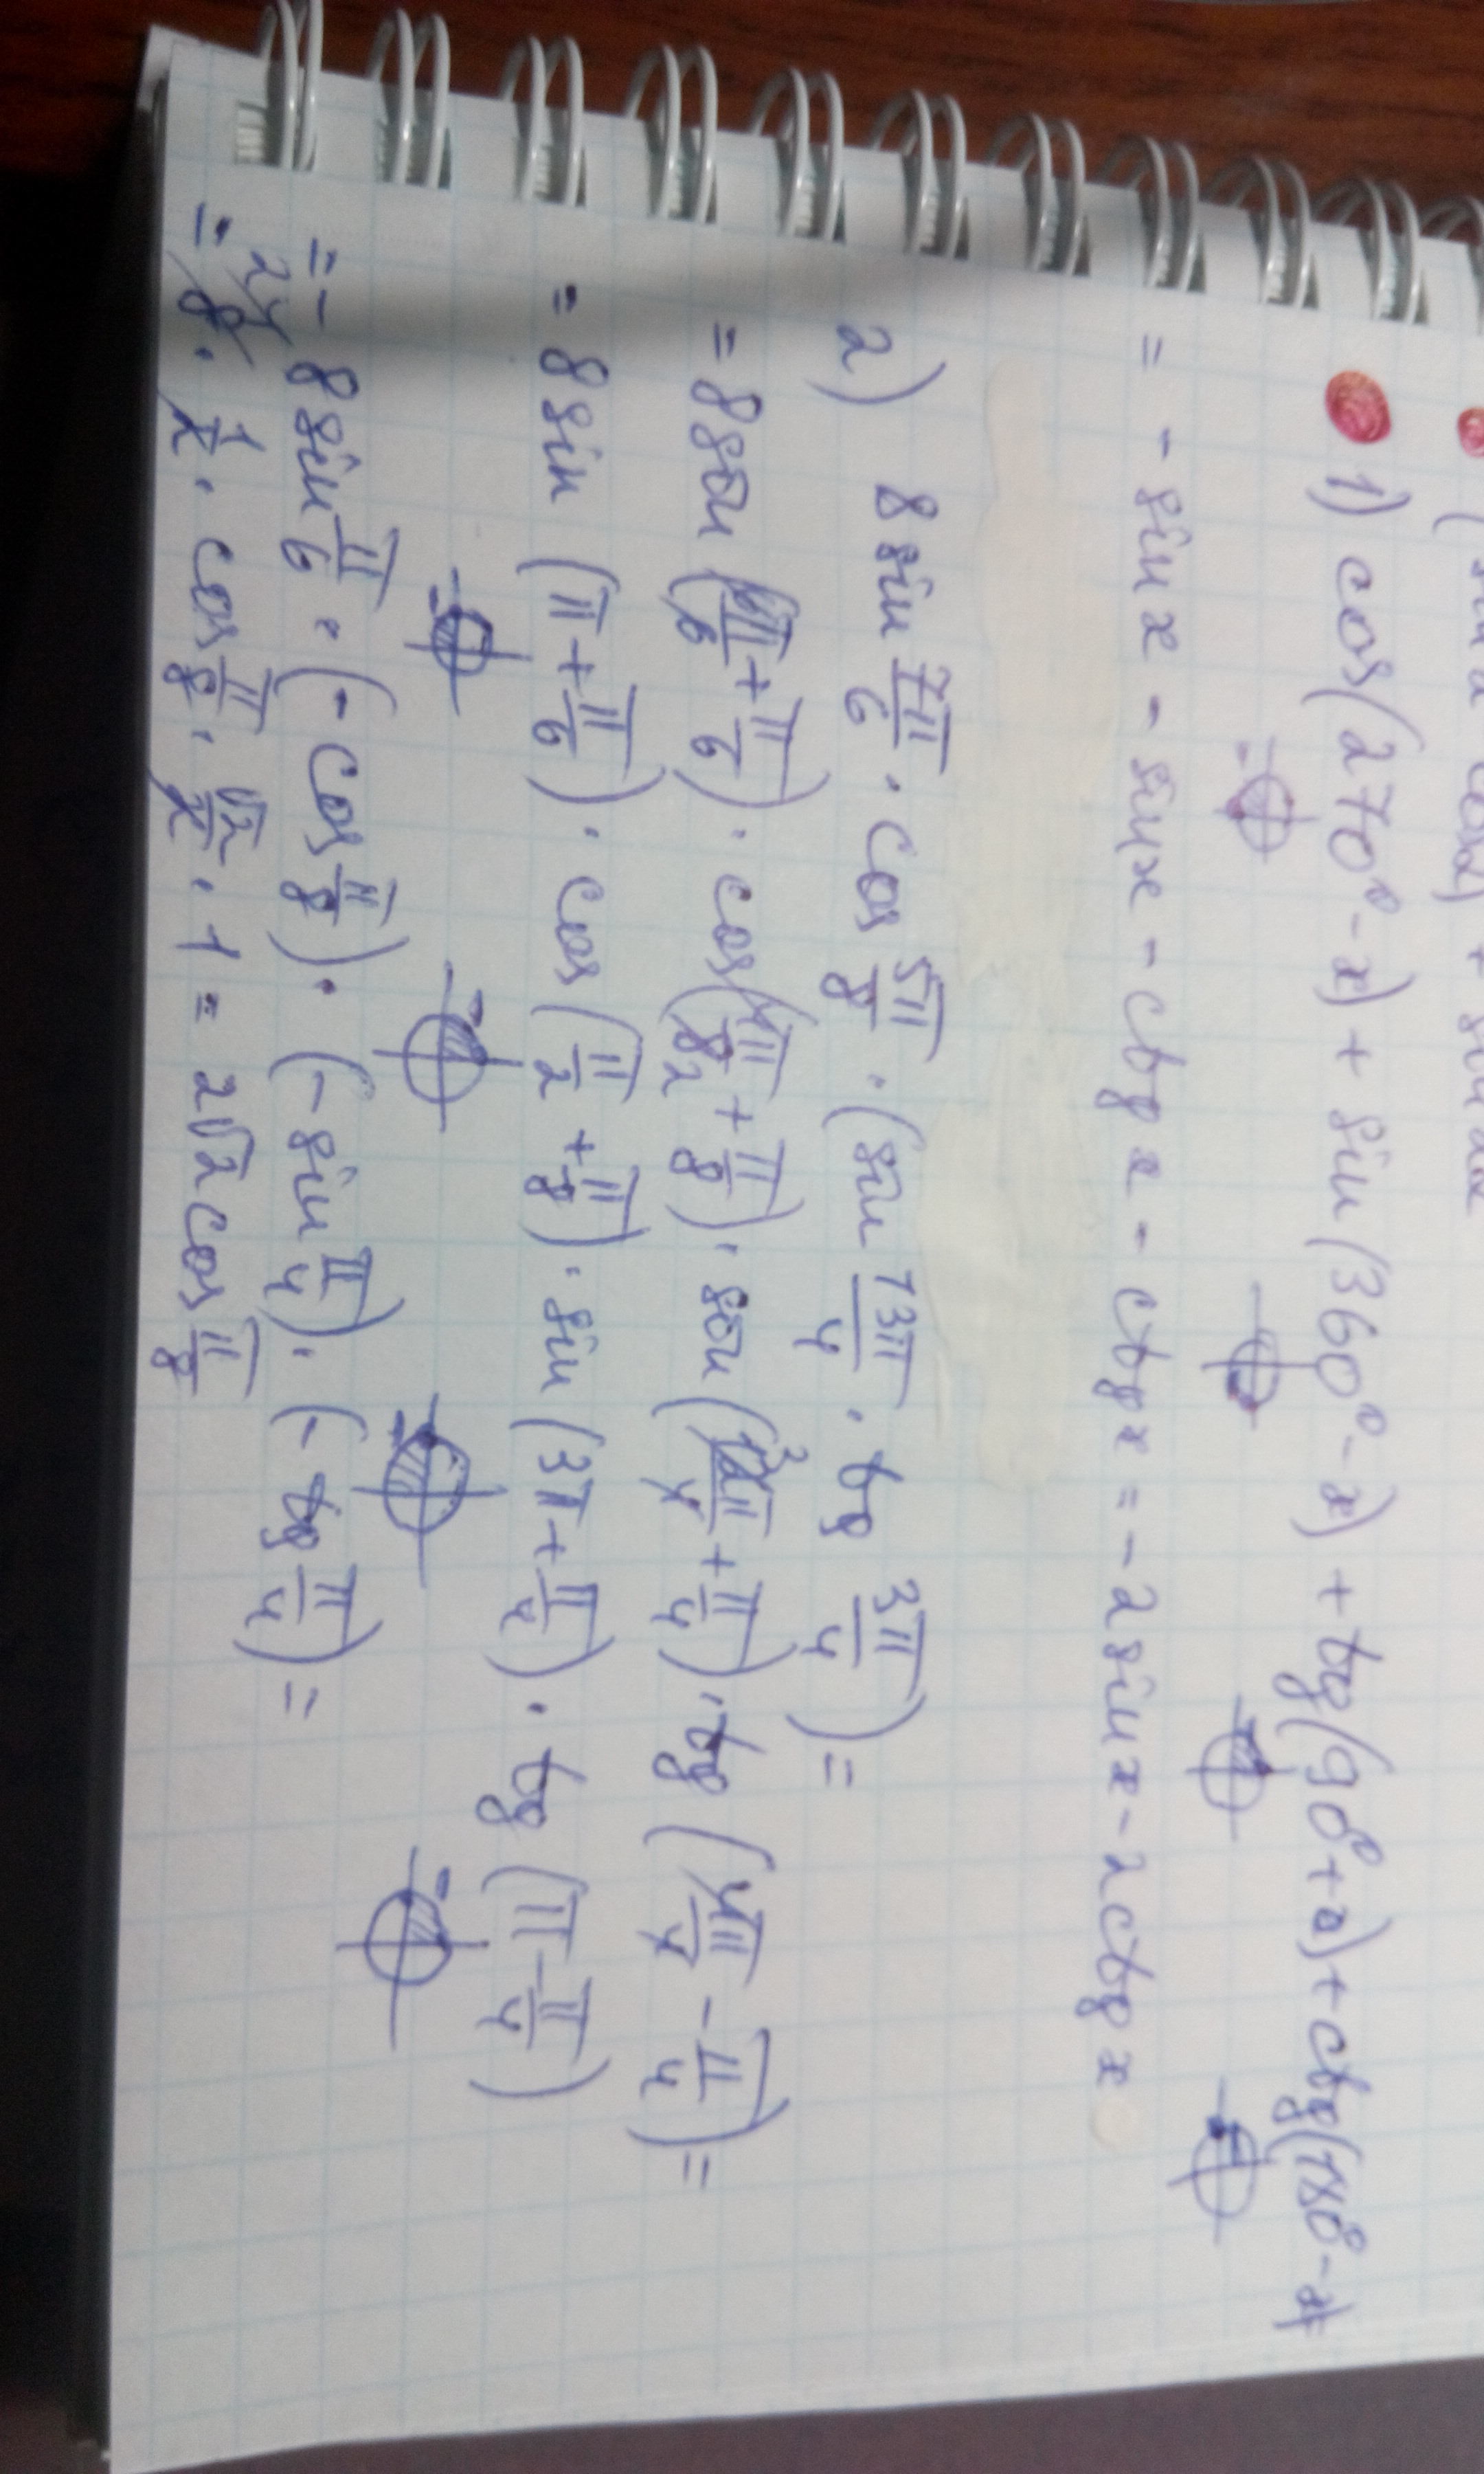 (sin x cosx) + sin
1) cos(270°-x) + sin(360°-x) + tg(90°+x) + ctg(180°-x)=
= - sin x - sin x - ctg x - ctg x = -2 sin x - 2 ctg x
2) 8 sin 7π/6 · cos 5π/8 · (sin 13π/4 · tg 3π/4) =
= 8 sin (6π/6 + π/6) · cos (4π/8 + π/8) · sin (12π/4 + π/4) · tg (4π/4 - π/4) =
= 8 sin (π + π/6) · cos (π/2 + π/8) · sin (3π + π/4) · tg (π - π/4)
= - 8 sin π/6 · (- cos π/8) · (- sin π/4) · (- tg π/4) =
= 8 · 1/2 · cos π/8 · √2/2 · 1 = 2√2 cos π/8